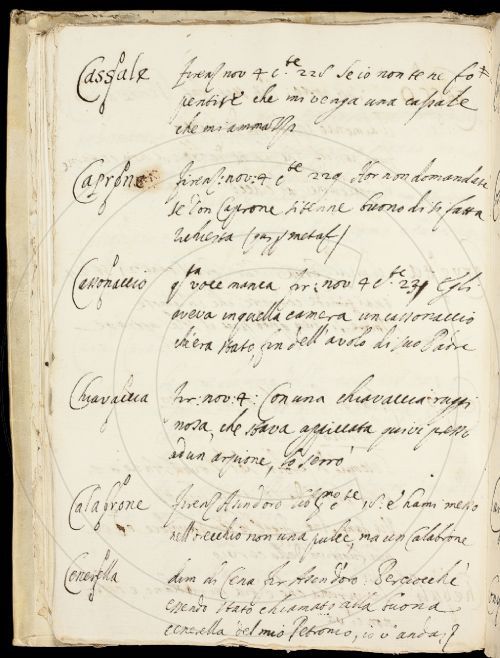 Cassale Firenz nov 4 c.te 228 se io non te ne fo
pentire che mi venga una cassale
che mi amma
Caprone Firenz: nov: 4 c.te 229 Hor non domandate
se don Caprone si tenne buono di si fatta
richiesta (
metaf)
Cassonaccio q.ta voce manca Fir: nov 4 c.te 231 Egli
aveva in quella camera un cassonaccio
ch'era stato fin dell'avolo di suo Padre
Chiavaccia Fir: nov: 4: Con una chiavaccia ruggi
nosa, che stava appiccata quivi presso
ad un arpione, lo serrò
Calabrone Firenz Asin d'oro è hami messo
nell'orecchio non una pulce, ma un Calabrone
Cenerella dim di Cena Fir Asin d'oro Perciocché
essendo stato chiamato alla buona
cenerella del mio Petronio, io v'andas